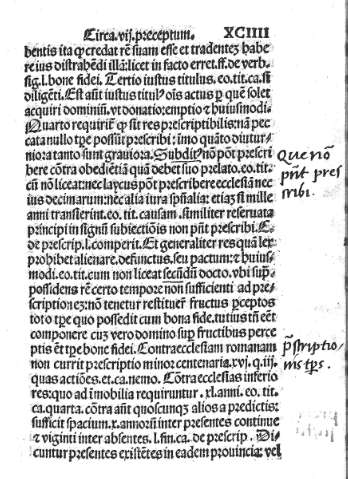 Circa .vij. preceptum. XCIIII
bentis ita ꝙ credat rẽ suam esse et tradentez habe
re ius distrahẽdi illã: licet in facto erret. ff. de verb.
sig. l. bone fidei. Tertio iustus titulus. eo. tit. ca. si
diligẽti. Est aũt iustus titulꝰ oĩs actus ꝑ quẽ solet
acquiri dominiũ. vt donatio: emptio ⁊ huiusmodi.
Quarto requiritur̃ ꝙ sit res prescriptibilis: nã pec
cata nullo tꝑe possũt prescribi: imo quãto diutur
niora: tanto sunt grauiora. Subditꝰ nõ põt prescri
bere cõtra obediẽtiã quã debet suo prelato. eo. tit.
cũ nõ liceat: nec laycus põt prescribere ecclesiã nec
ius decimarum: nec alia iura spũalia: etiaz si mille
anni transierint. eo. tit. causam. similiter reseruata
principi in signũ subiectiõis non pñt prescribi. C.
de prescrip. l. comperit. Et generaliter res quã lex
prohibet alienare. defunctus. seu pactum: ⁊ huius-
modi. eo. tit. eum non liceat secũdũ docto. vbi supͣ.
possidens rẽ certo tempore non sufficienti ad pre-
scriptionez: nõ tenetur restituer̃ fructus ꝑceptos
toto tꝑe quo possedit cum bona fide. tutius tñ eẽt
componere cuz vero domino sup̃ fructibus perce
ptis ẽt tꝑe bone fidei. Contra ecclesiam romanam
non currit prescriptio minor centenaria. xvj. q. iij.
quas actiões. et ca. nemo. Cõtra ecclesias inferio
res: quo ad ĩmobilia requiruntur. xl. anni. eo. tit.
ca. quarta. cõtra aũt quoscunqꝫ alios a predictis:
sufficit spacium. x. annorũ inter presentes continue
⁊ viginti inter absentes. l. fin. ca. de prescrip. Di-
cuntur presentes existẽtes in eadem prouincia: vel
Que nõ
pñt pres
cribi.
p̃scriptio-
nis tp̃s.